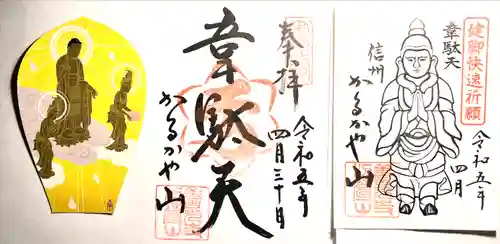 奉拝
韋駄天
令和五年
四月三十日
かるかや山
健脚快速祈願
韋駄天
信州
かるかや山
令和五年
四月